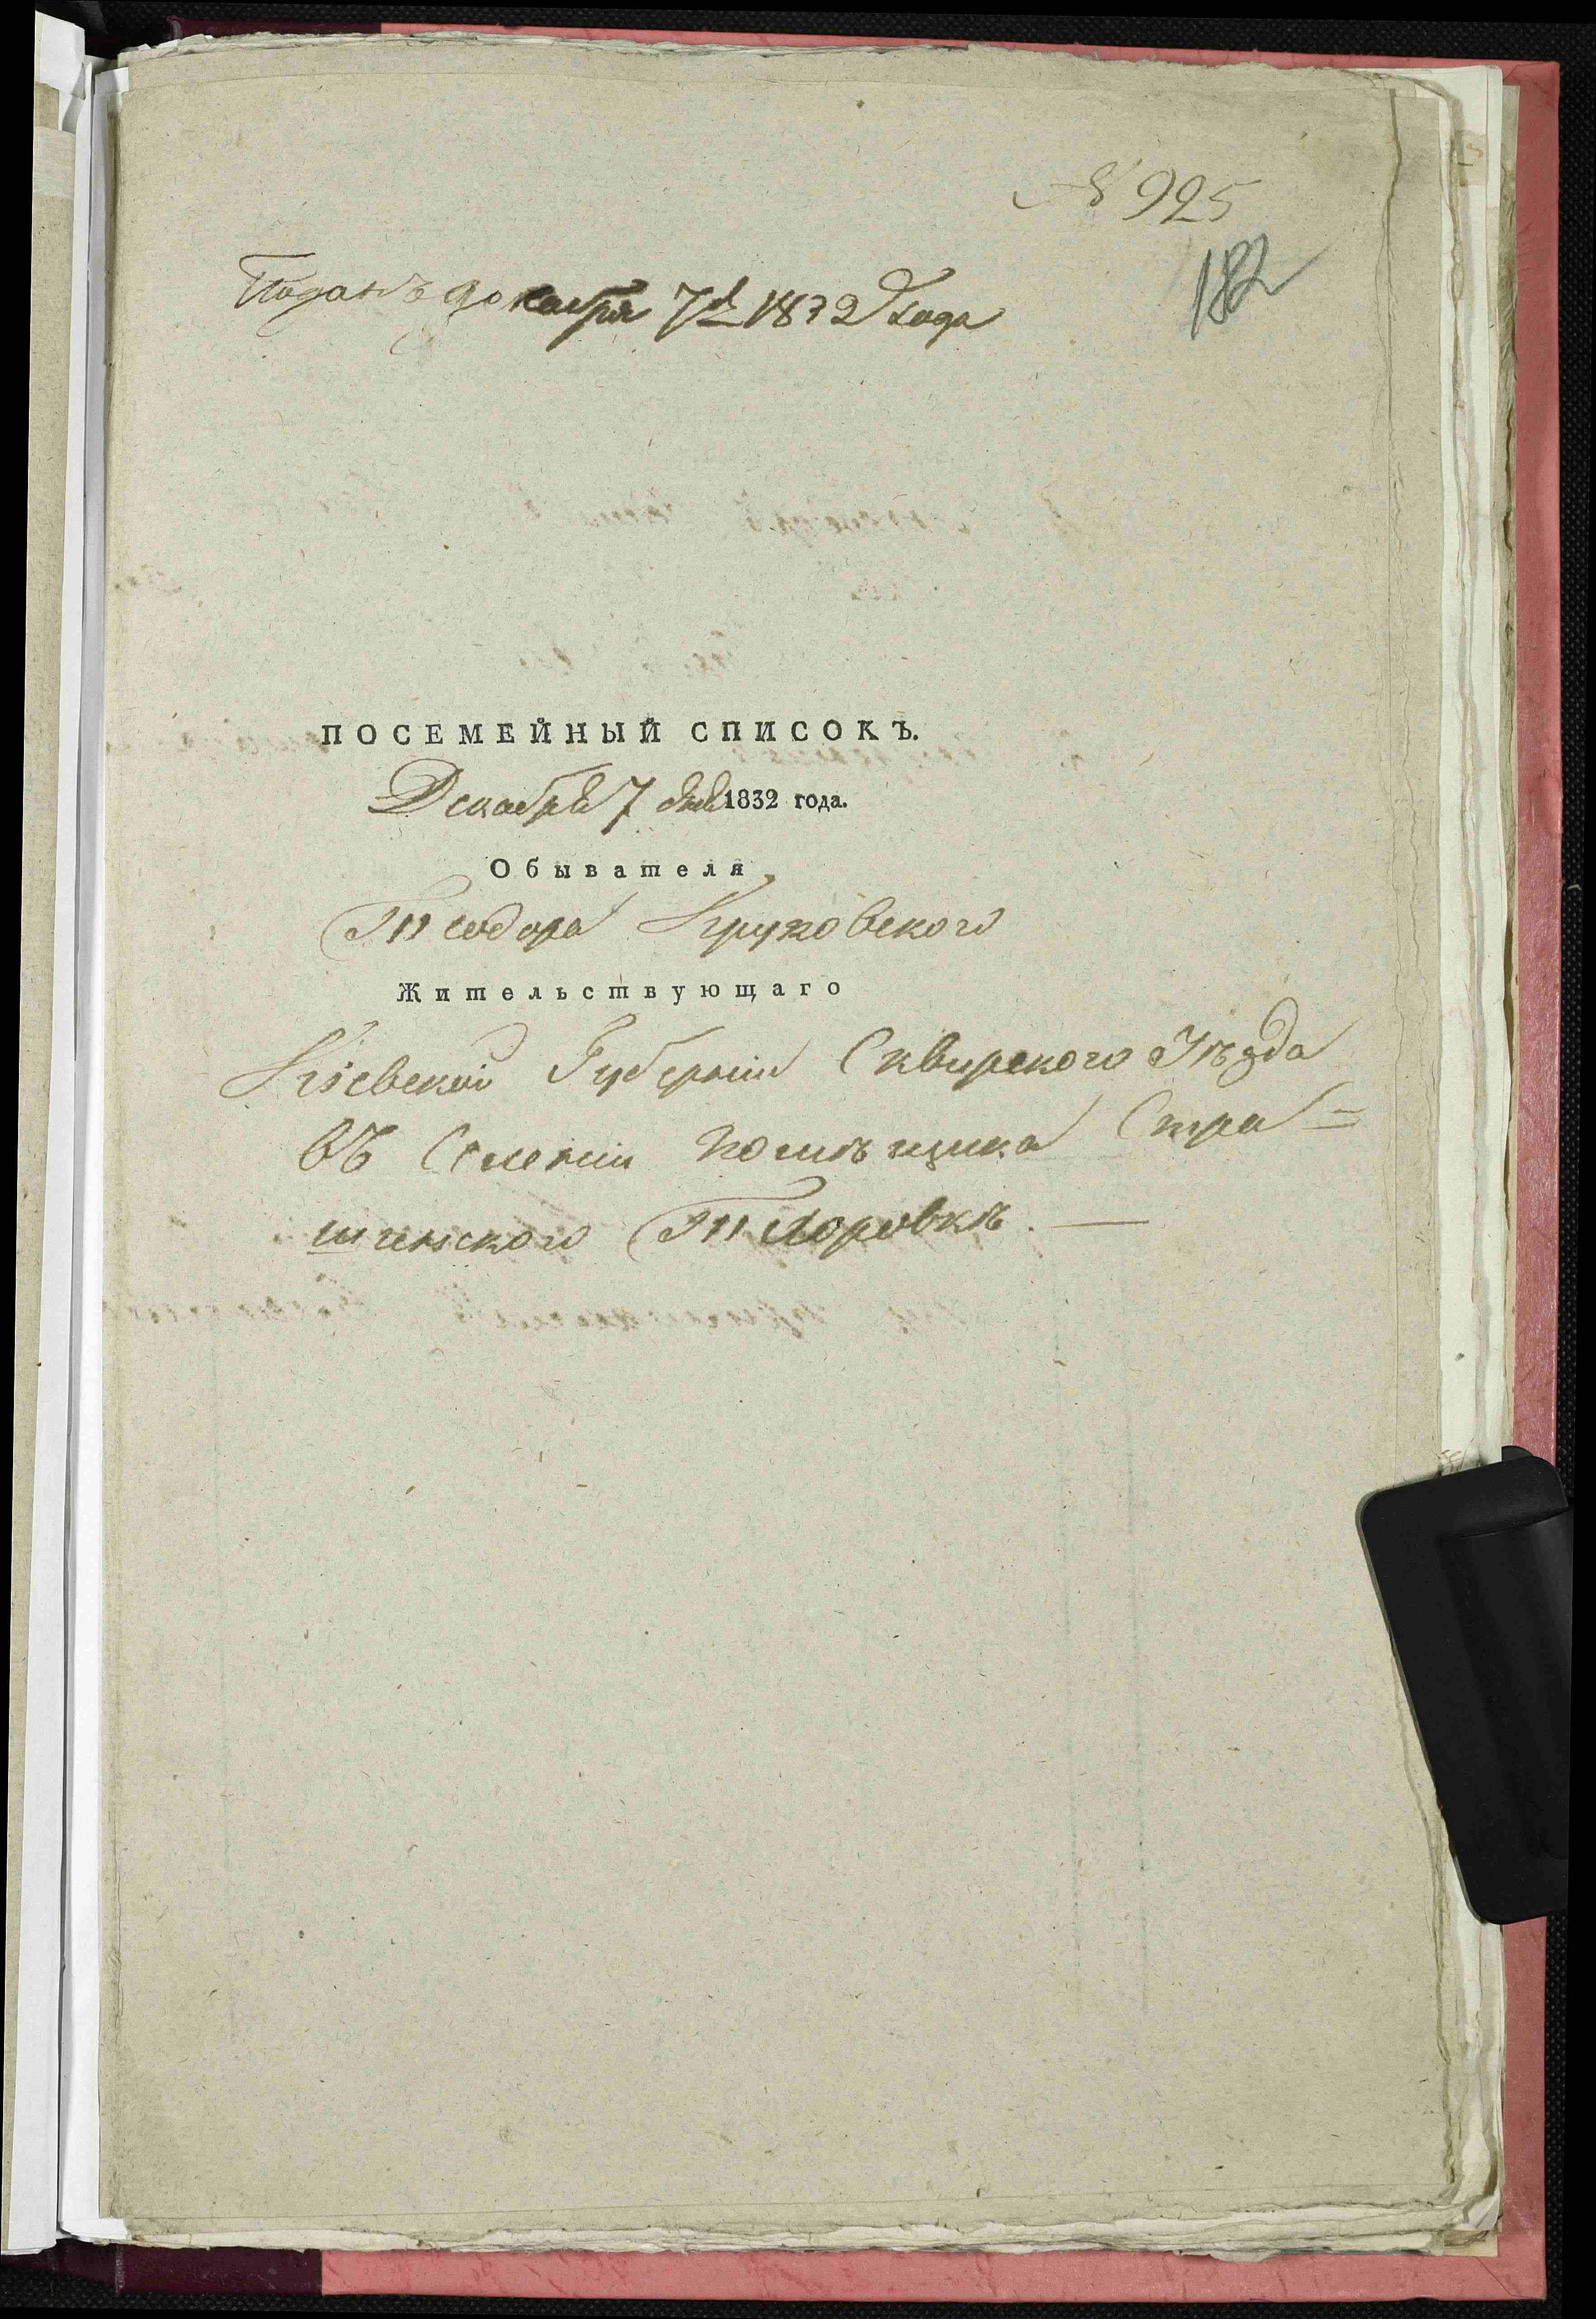 № 925
182
Поданъ декабря 7 д 1832 Года
ПОСЕМЕЙНЫЙ СПИСОКЪ.
Декабря 7 дня 1832 года.
Обывателя
Теодора Круковского
Жительствующаго
Кіевской Губерніи Сквирского Уѣзда
въ Селеніи помѣщика Стра=
шенского Токоровкѣ.